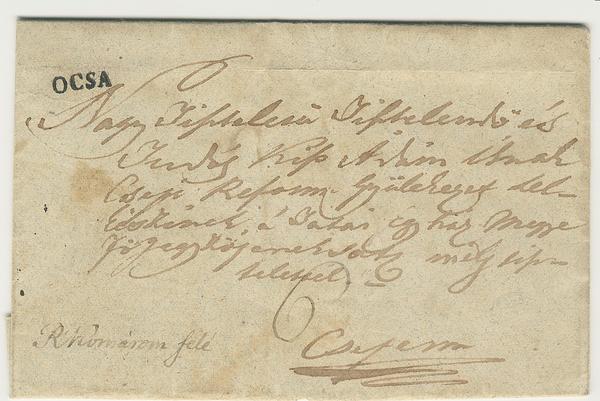 OCSA
Nagy Tiszteletü Tisztelendő és
Tudós Kiss Ádám Urnak
Csepi Reform. Gyülekezet lel-
készének á Tatai egyház Megye
Fő jegyzőjének mély tisz-
telettel
6
R. Komárom felé
Csepenn